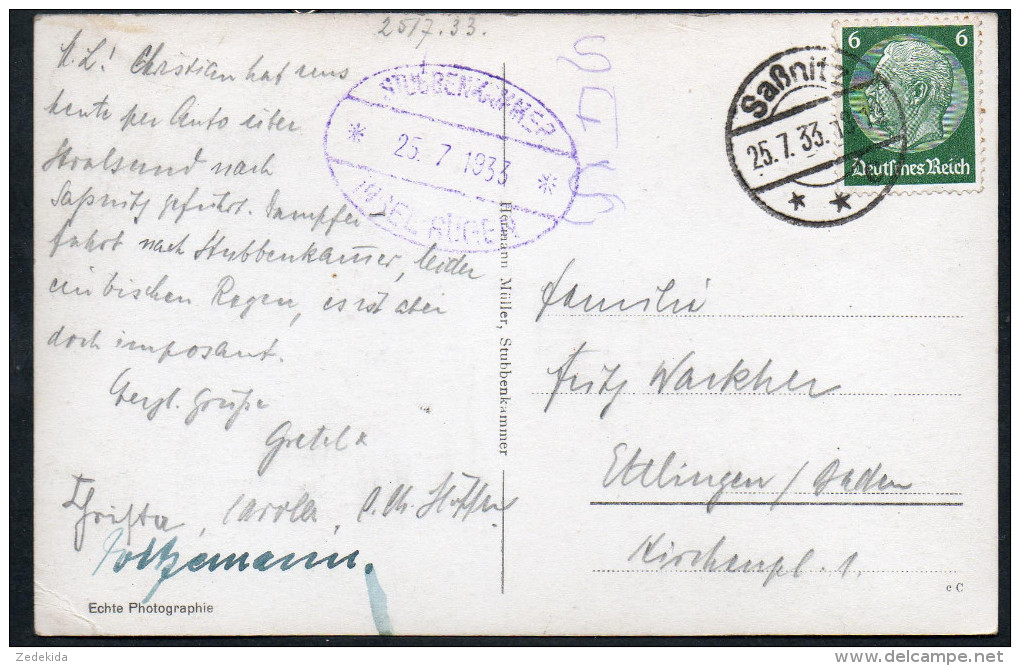 25.7.33.
M. L.! Christian hat uns
heute per Auto über
Stralsund nach
Saßnitz geführt. Dampfer
fahrt nach Stubbenkamer, leider
ein bischen Regen, es ist aber
doch imposant.
Herzl. Grüße
Gretel
Christa, Carola,
Echte Photographie
STUBBENKAMMER
* 25. 7. 1933 *
INSEL RÜGEN
Hermann Müller, Stubbenkammer
Saßnitz
25.7.33.
* *
6 6
Deutsches Reich
Familie
Fritz
Ettlingen / Baden
Kirchenpl. 1.
e C
Zedekida